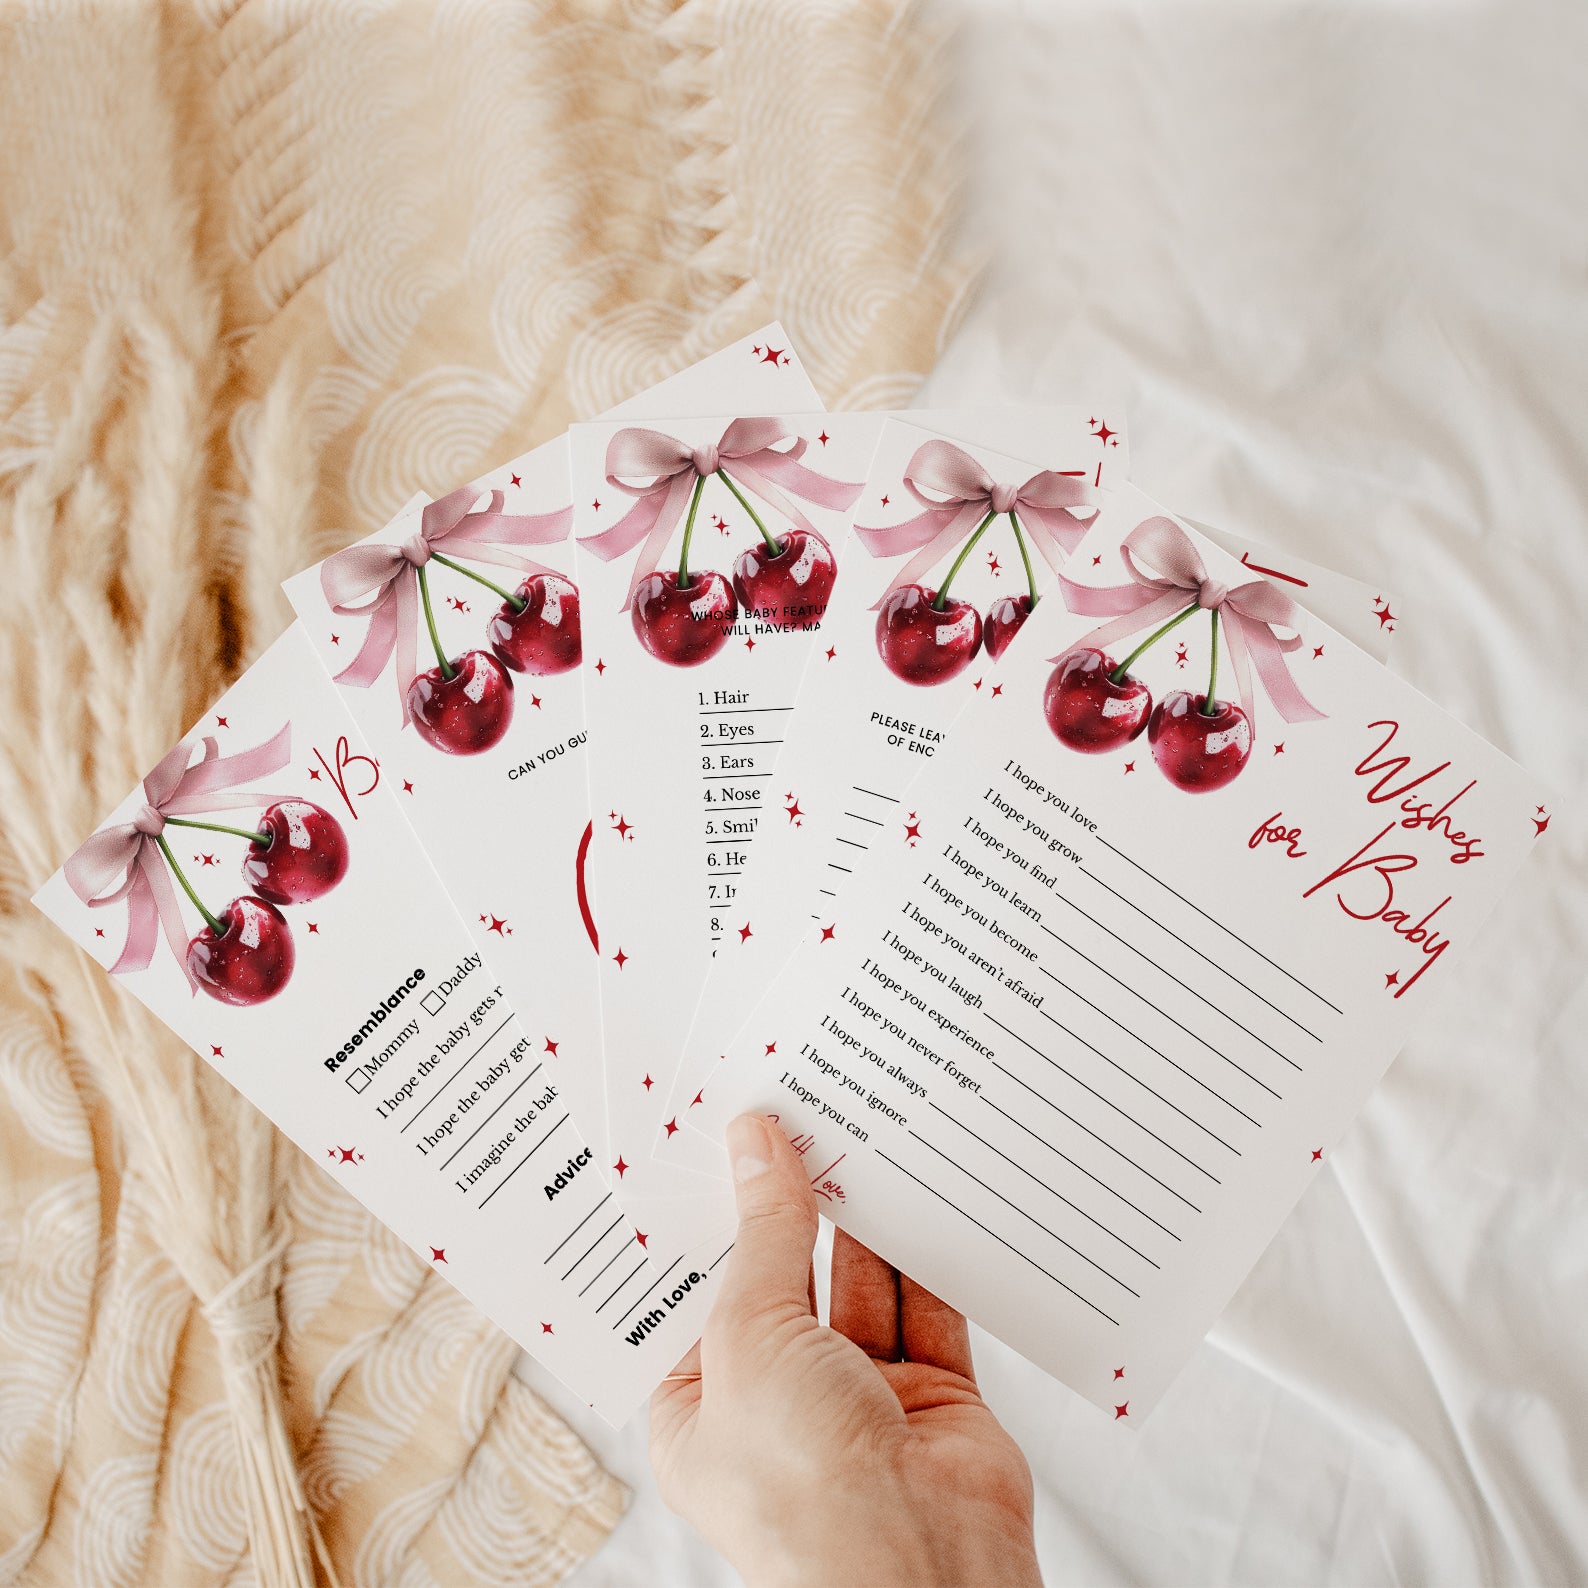 B
Resemblance
Mommy Daddy
I hope the baby gets
I hope the baby get
I imagine the
Advice
With Love,
CAN YOU
WHOSE BABY
WILL HAVE?
1. Hair
2. Eyes
3. Ears
4. Nose
5.
6.
7.
8.
PLEASE
OF
Wishes
for Baby
I hope you love
I hope you grow
I hope you find
I hope you learn
I hope you become
I hope you aren't afraid
I hope you laugh
I hope you experience
I hope you never forget
I hope you always
I hope you ignore
I hope you can
Love,